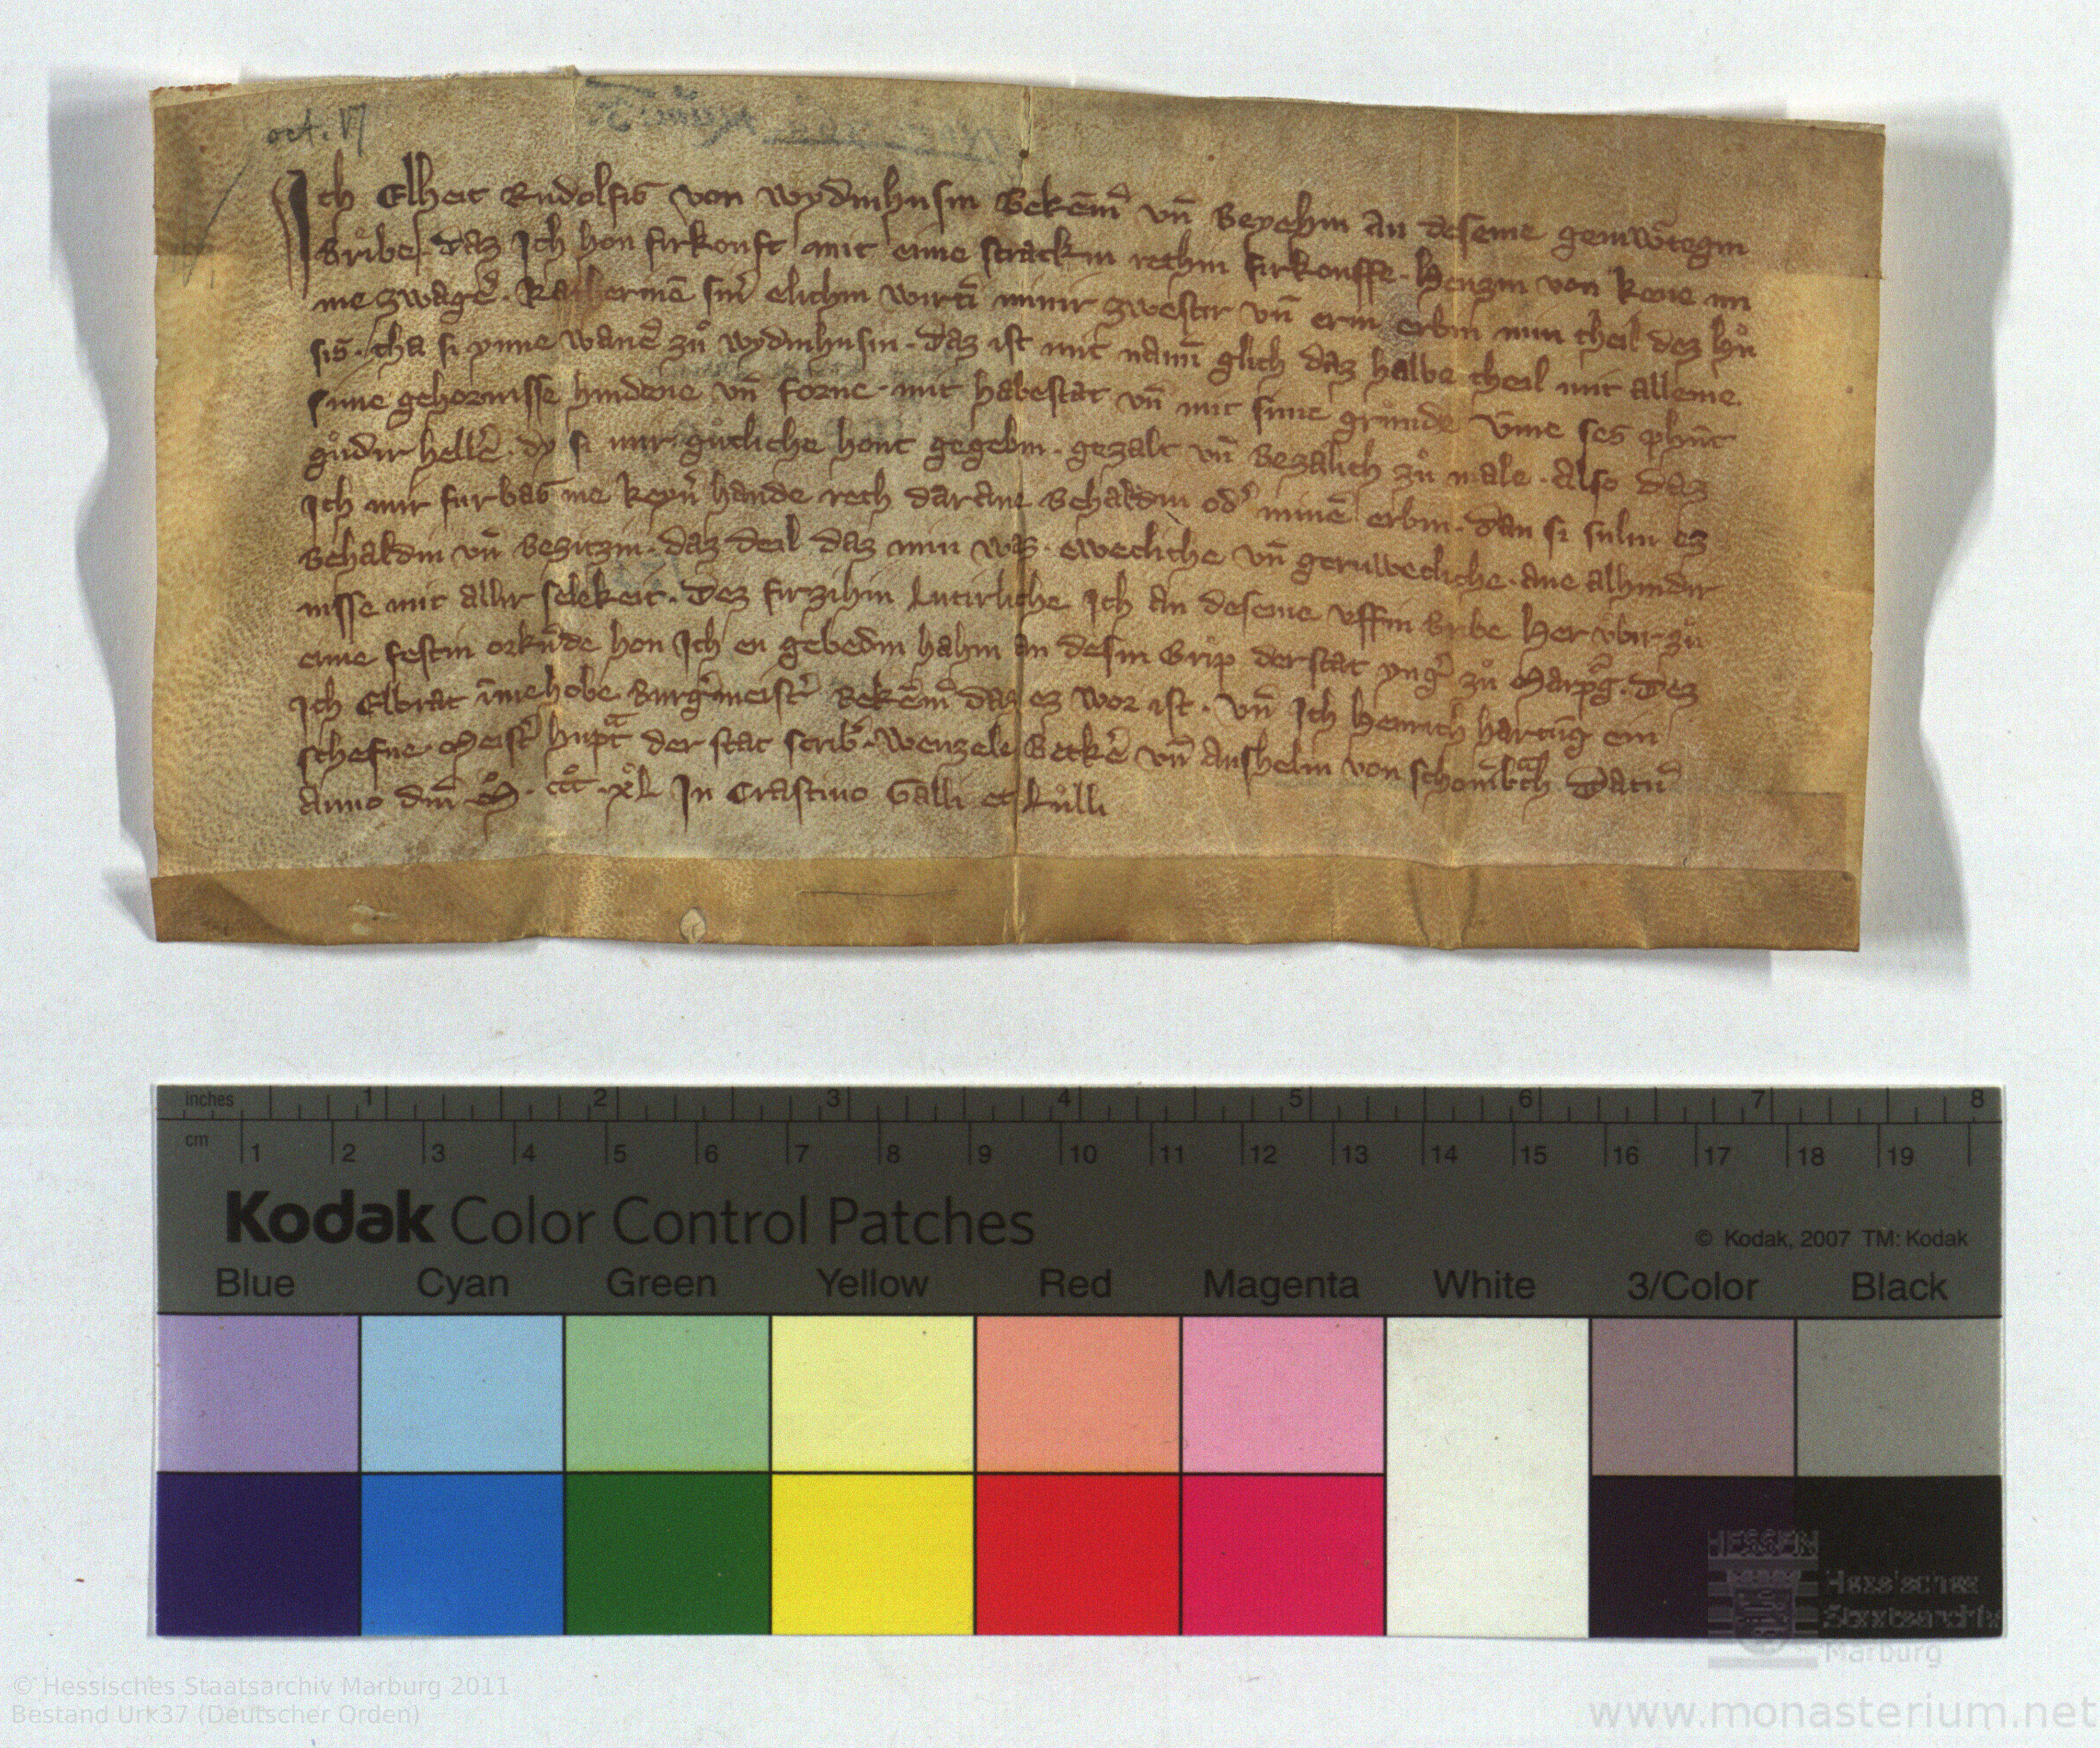 oct. 17
Ich Elheit Rudolfis von wydinhusin Bekēm̄ vn̄ Beyehin an deseme geinwtegin
Bribe. daz Ich hon firkouft mit eime strackin rechin firkouffe. Henzin von kene mi
me zwagē. Katherinē sinˀ elichin wirtī minir zwestir vn̄ erin erbin min theil dez hů
sis. tha si ynne wanē zů wydinhusin. Daz ist mit namī glich daz halbe theil mit alleme
sime gehornisse hindene vn̄ forne. mit habestat vn̄ mit sime grůnde vm̄e ses phūt
gůdir hellē. dy si mir gůtliche hont gegebin. gezalt vn̄ Bezalich zů male. Also daz
Ich mir furbas me keynˀ hande rech darane Behaldin odˀ minē erbin. Dan si sulin ez
Behaldin vn̄ Besitzin. daz deil daz min was. ewecliche vn̄ geruwecliche. ane alhindir
nisse mit allir selekeit. Dez firzihin Lutirliche Ich an deseme uffin Bribe her vbir zů
eime festin orkūde hon Ich en gebedin hahin an desin Brip der stat yngˀ zů Marpg. Dez
Ich Elbrat īmehobe Burgˀmeistˀ Bekēm̄ daz ez wor ist. vn̄ Ich Henrich hartūg ein
schefne. Meistˀ hupt der stat scrib. Wenzele Beckē vn̄ Anshelm von schom̄bch Datū
Anno dm̄ M. ccc. xl In Crastino Galli et Lulli
inches 1 2 3 4 5 6 7 8
cm 1 2 3 4 5 6 7 8 9 10 11 12 13 14 15 16 17 18 19
Kodak Color Control Patches
© Kodak, 2007 TM: Kodak
Blue Cyan Green Yellow Red Magenta White 3/Color Black
HESSEN
Hessisches
Staatsarchiv
Marburg
© Hessisches Staatsarchiv Marburg 2011
Bestand Urk37 (Deutscher Orden)
www.monasterium.net